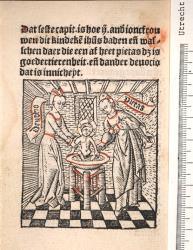 Dat seste capit. is hoe ij. and ioncfrou
wen dit kindekē ihūs baden eñ was-
schen daer die een af heet pietas dz is
goedertierenheit. eñ dander deuocio
dat is innicheyt.
Pietas
Utrecht